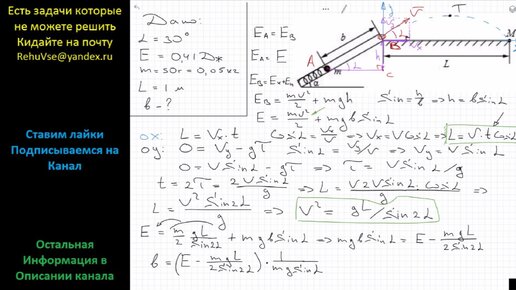 Есть задачи которые
не можете решить
Кидайте на почту
RehuVse@yandex.ru
Ставим лайки
Подписываемся на
Канал
Остальная
Информация в
Описании канала
Дано:
L = 30°
E = 0,41 Дж
m = 50г = 0,05кг
L = 1 м
b - ?
E_A = E_B
E_A = E
E_B = E_к + E_п
E_B = mv²/2 + mgh
Sin L = h/b ⇒ h = b Sin L
E = mv²/2 + mgb Sin L
ox: L = V_x · t
Cos L = V_x/V ⇒ V_x = V Cos L
L = V · t Cos L
oy: 0 = V_y - gτ
Sin L = V_y/V ⇒ V_y = V Sin L
0 = V Sin L - gτ ⇒ τ = V Sin L / g
t = 2τ = 2V Sin L / g ⇒ L = V 2V Sin L · Cos L / g ⇒
L = V² Sin 2L / g ⇒ V² = gL / Sin 2L
E = m/2 gL/Sin 2L + mgb Sin L ⇒ mgb Sin L = E - mgL/2Sin 2L
b = (E - mgL/2Sin 2L) · 1/mg Sin L
A
B
C
T
M
L
b
h
m
a
V